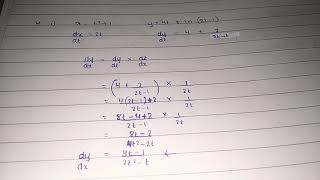 4 i) x = t²+1 y = 4t + ln (2t-1)
dx/dt = 2t dy/dt = 4 + 2/2t-1
dy/dx = dy/dt × dt/dx
= (4 + 2/2t-1) × 1/2t
= 4(2t-1)+2/2t-1 × 1/2t
= 8t-4+2/2t-1 × 1/2t
= 8t-2/4t²-2t
dy/dx = 4t-1/2t²-t